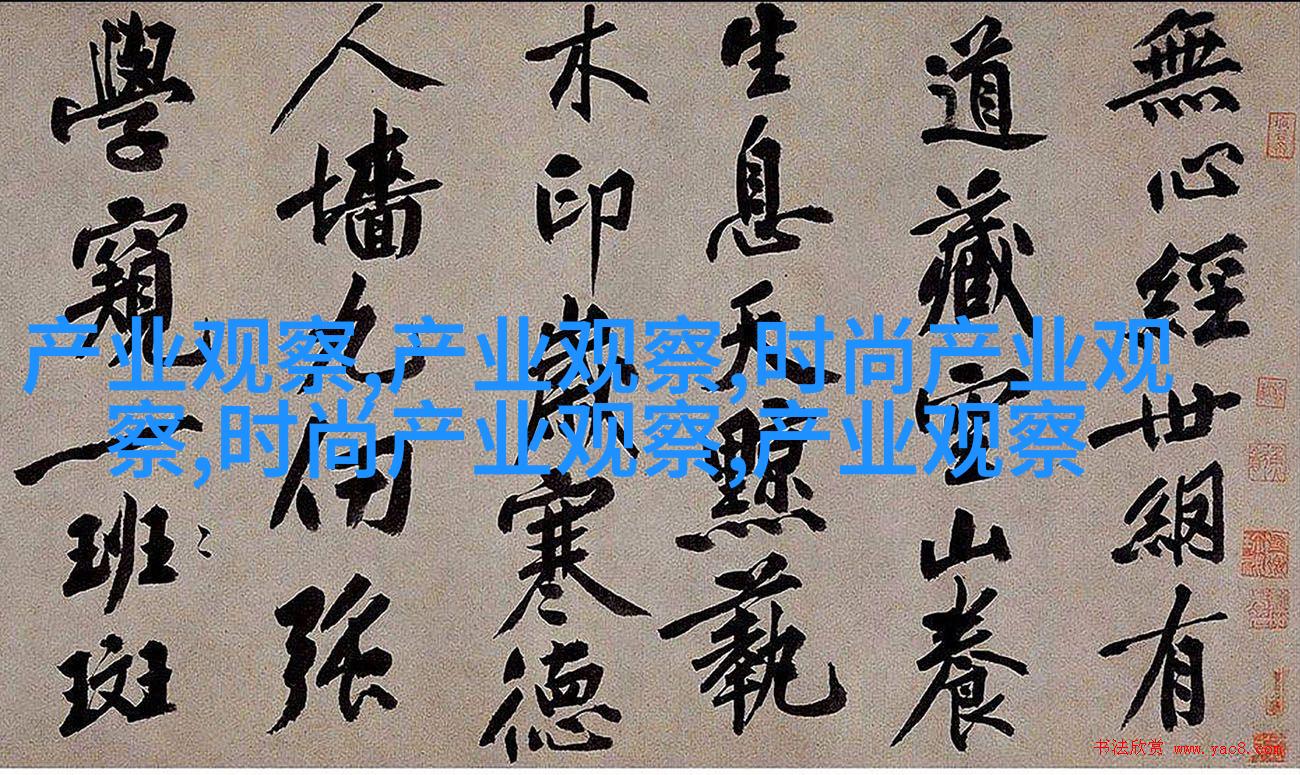 产业观察,产业观察,时尚产业观
察,时尚产业观察,产业观察
無心經世網有
道藏山養
生息天黥藝
木印歲寒德
人墻九仞強
學窺一班斑
书法欣赏 www.yac8.com